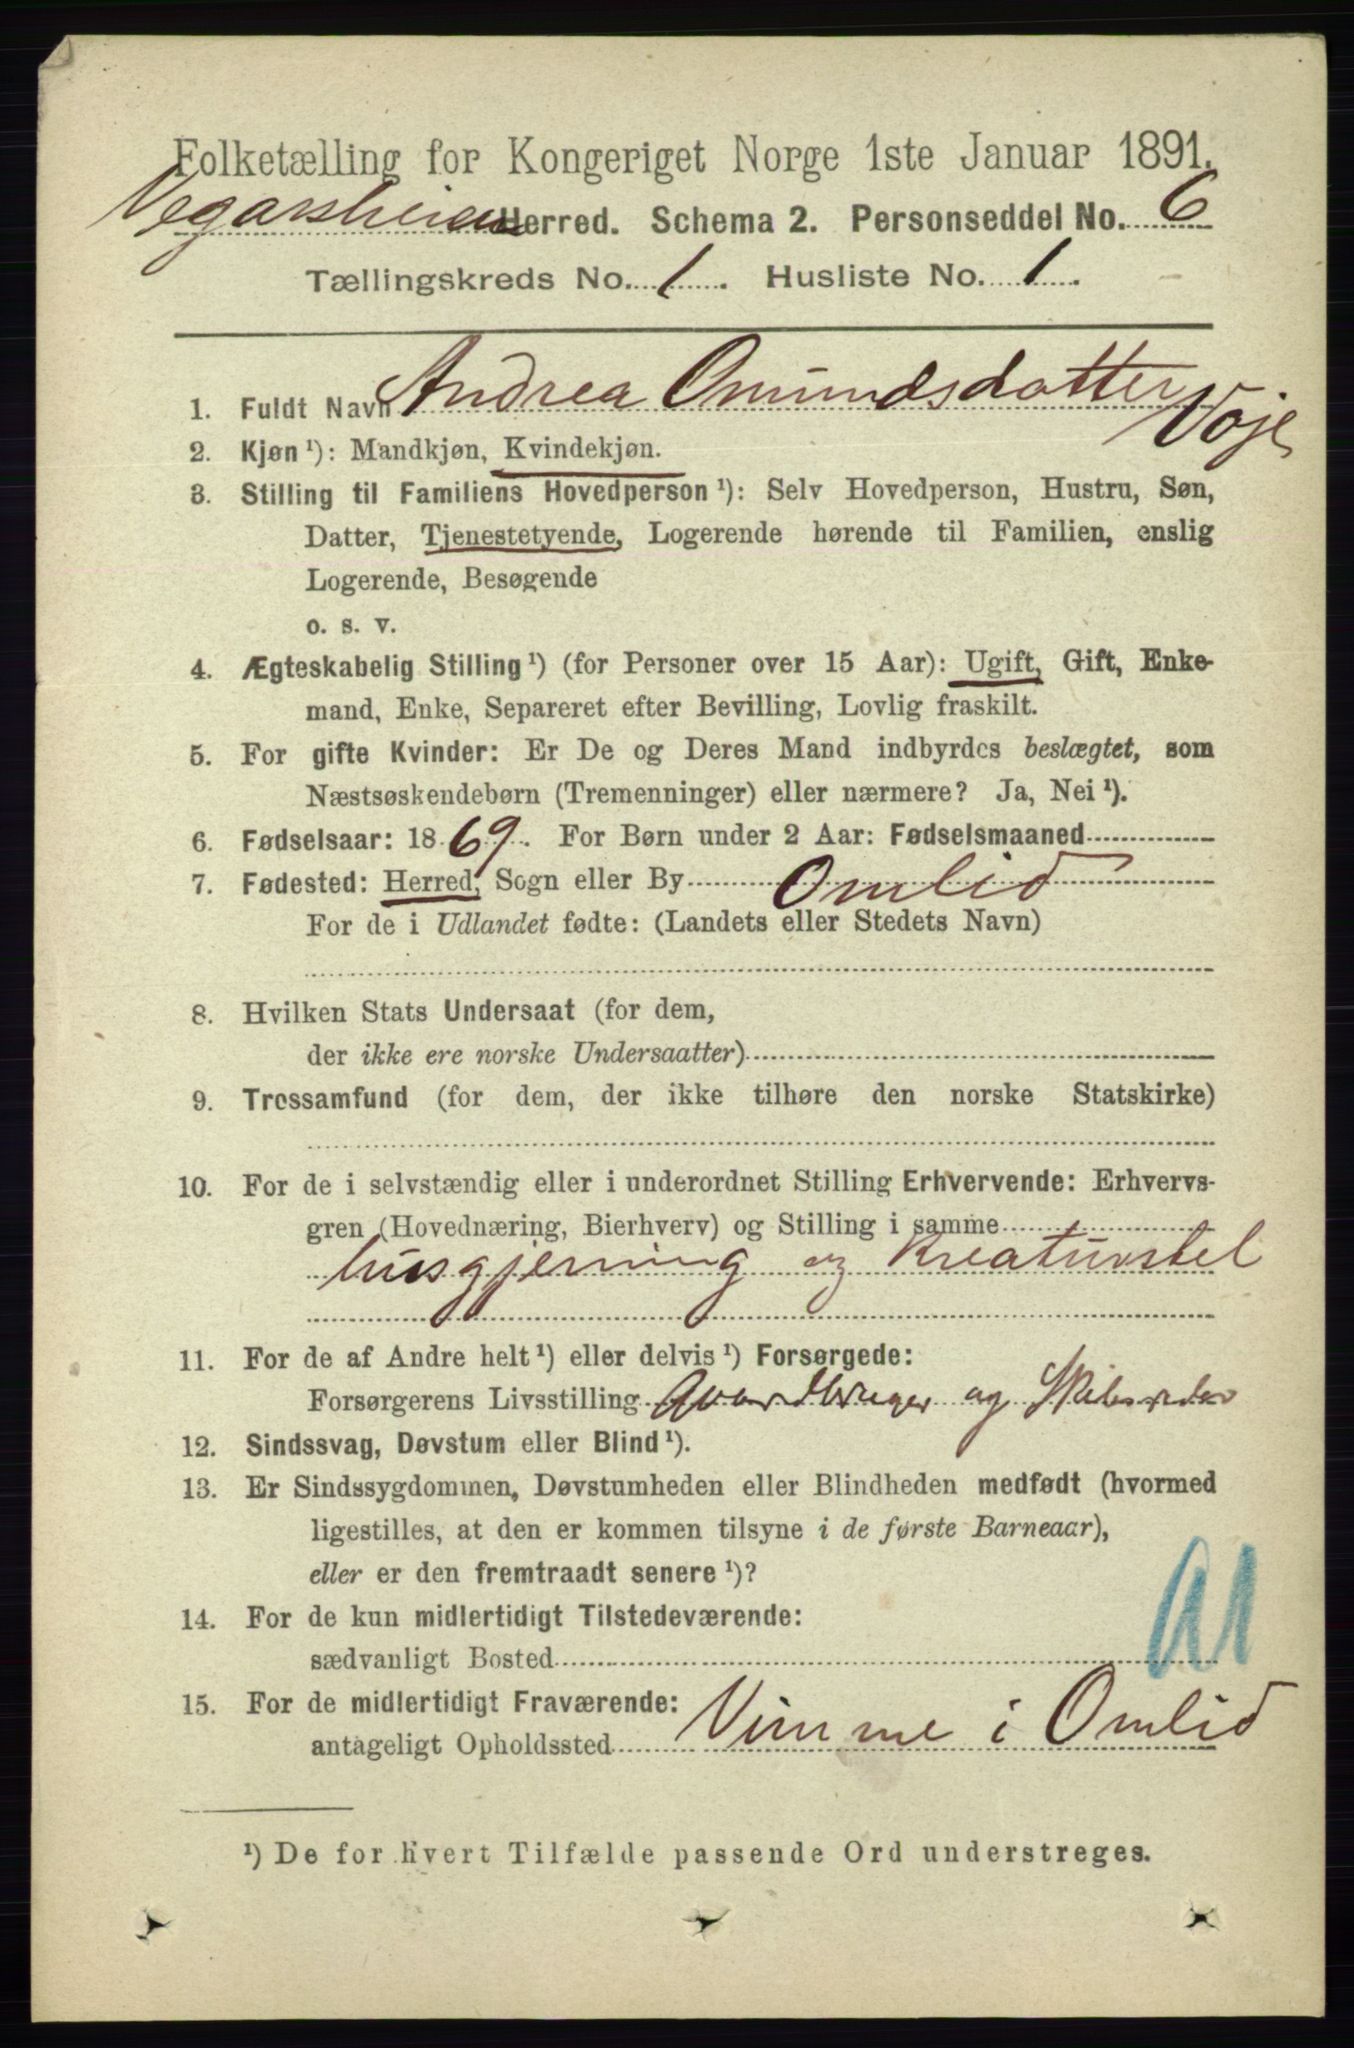 Folketælling for Kongeriget Norge 1ste Januar 1891.
Vegarsheien Herred. Schema 2. Personseddel No. 6
Tællingskreds No. 1. Husliste No. 1.
1. Fuldt Navn Andrea Omundsdatter
Voje
2. Kjøn ¹): Mandkjøn, Kvindekjøn.
3. Stilling til Familiens Hovedperson ¹): Selv Hovedperson, Hustru, Søn,
Datter, Tjenestetyende, Logerende hørende til Familien, enslig
Logerende, Besøgende
o. s. v.
4. Ægteskabelig Stilling ¹) (for Personer over 15 Aar): Ugift, Gift, Enke-
mand, Enke, Separeret efter Bevilling, Lovlig fraskilt.
5. For gifte Kvinder: Er De og Deres Mand indbyrdes beslægtet, som
Næstsøskendebørn (Tremenninger) eller nærmere? Ja, Nei ¹).
6. Fødselsaar: 1869. For Børn under 2 Aar: Fødselsmaaned
7. Fødested: Herred, Sogn eller By Omlid
For de i Udlandet fødte: (Landets eller Stedets Navn)
8. Hvilken Stats Undersaat (for dem,
der ikke ere norske Undersaatter)
9. Trossamfund (for dem, der ikke tilhøre den norske Statskirke)
10. For de i selvstændig eller i underordnet Stilling Erhvervende: Erhvervs-
gren (Hovednæring, Bierhverv) og Stilling i samme
husgjerning og Kreaturstel
11. For de af Andre helt ¹) eller delvis ¹) Forsørgede:
Forsørgerens Livsstilling Gaardbruger og Skibsreder
12. Sindssvag, Døvstum eller Blind ¹).
13. Er Sindssygdommen, Døvstumheden eller Blindheden medfødt (hvormed
ligestilles, at den er kommen tilsyne i de første Barneaar),
eller er den fremtraadt senere ¹)?
14. For de kun midlertidigt Tilstedeværende:
sædvanligt Bosted
15. For de midlertidigt Fraværende:
antageligt Opholdssted Vimme i Omlid
¹) De for hvert Tilfælde passende Ord understreges.